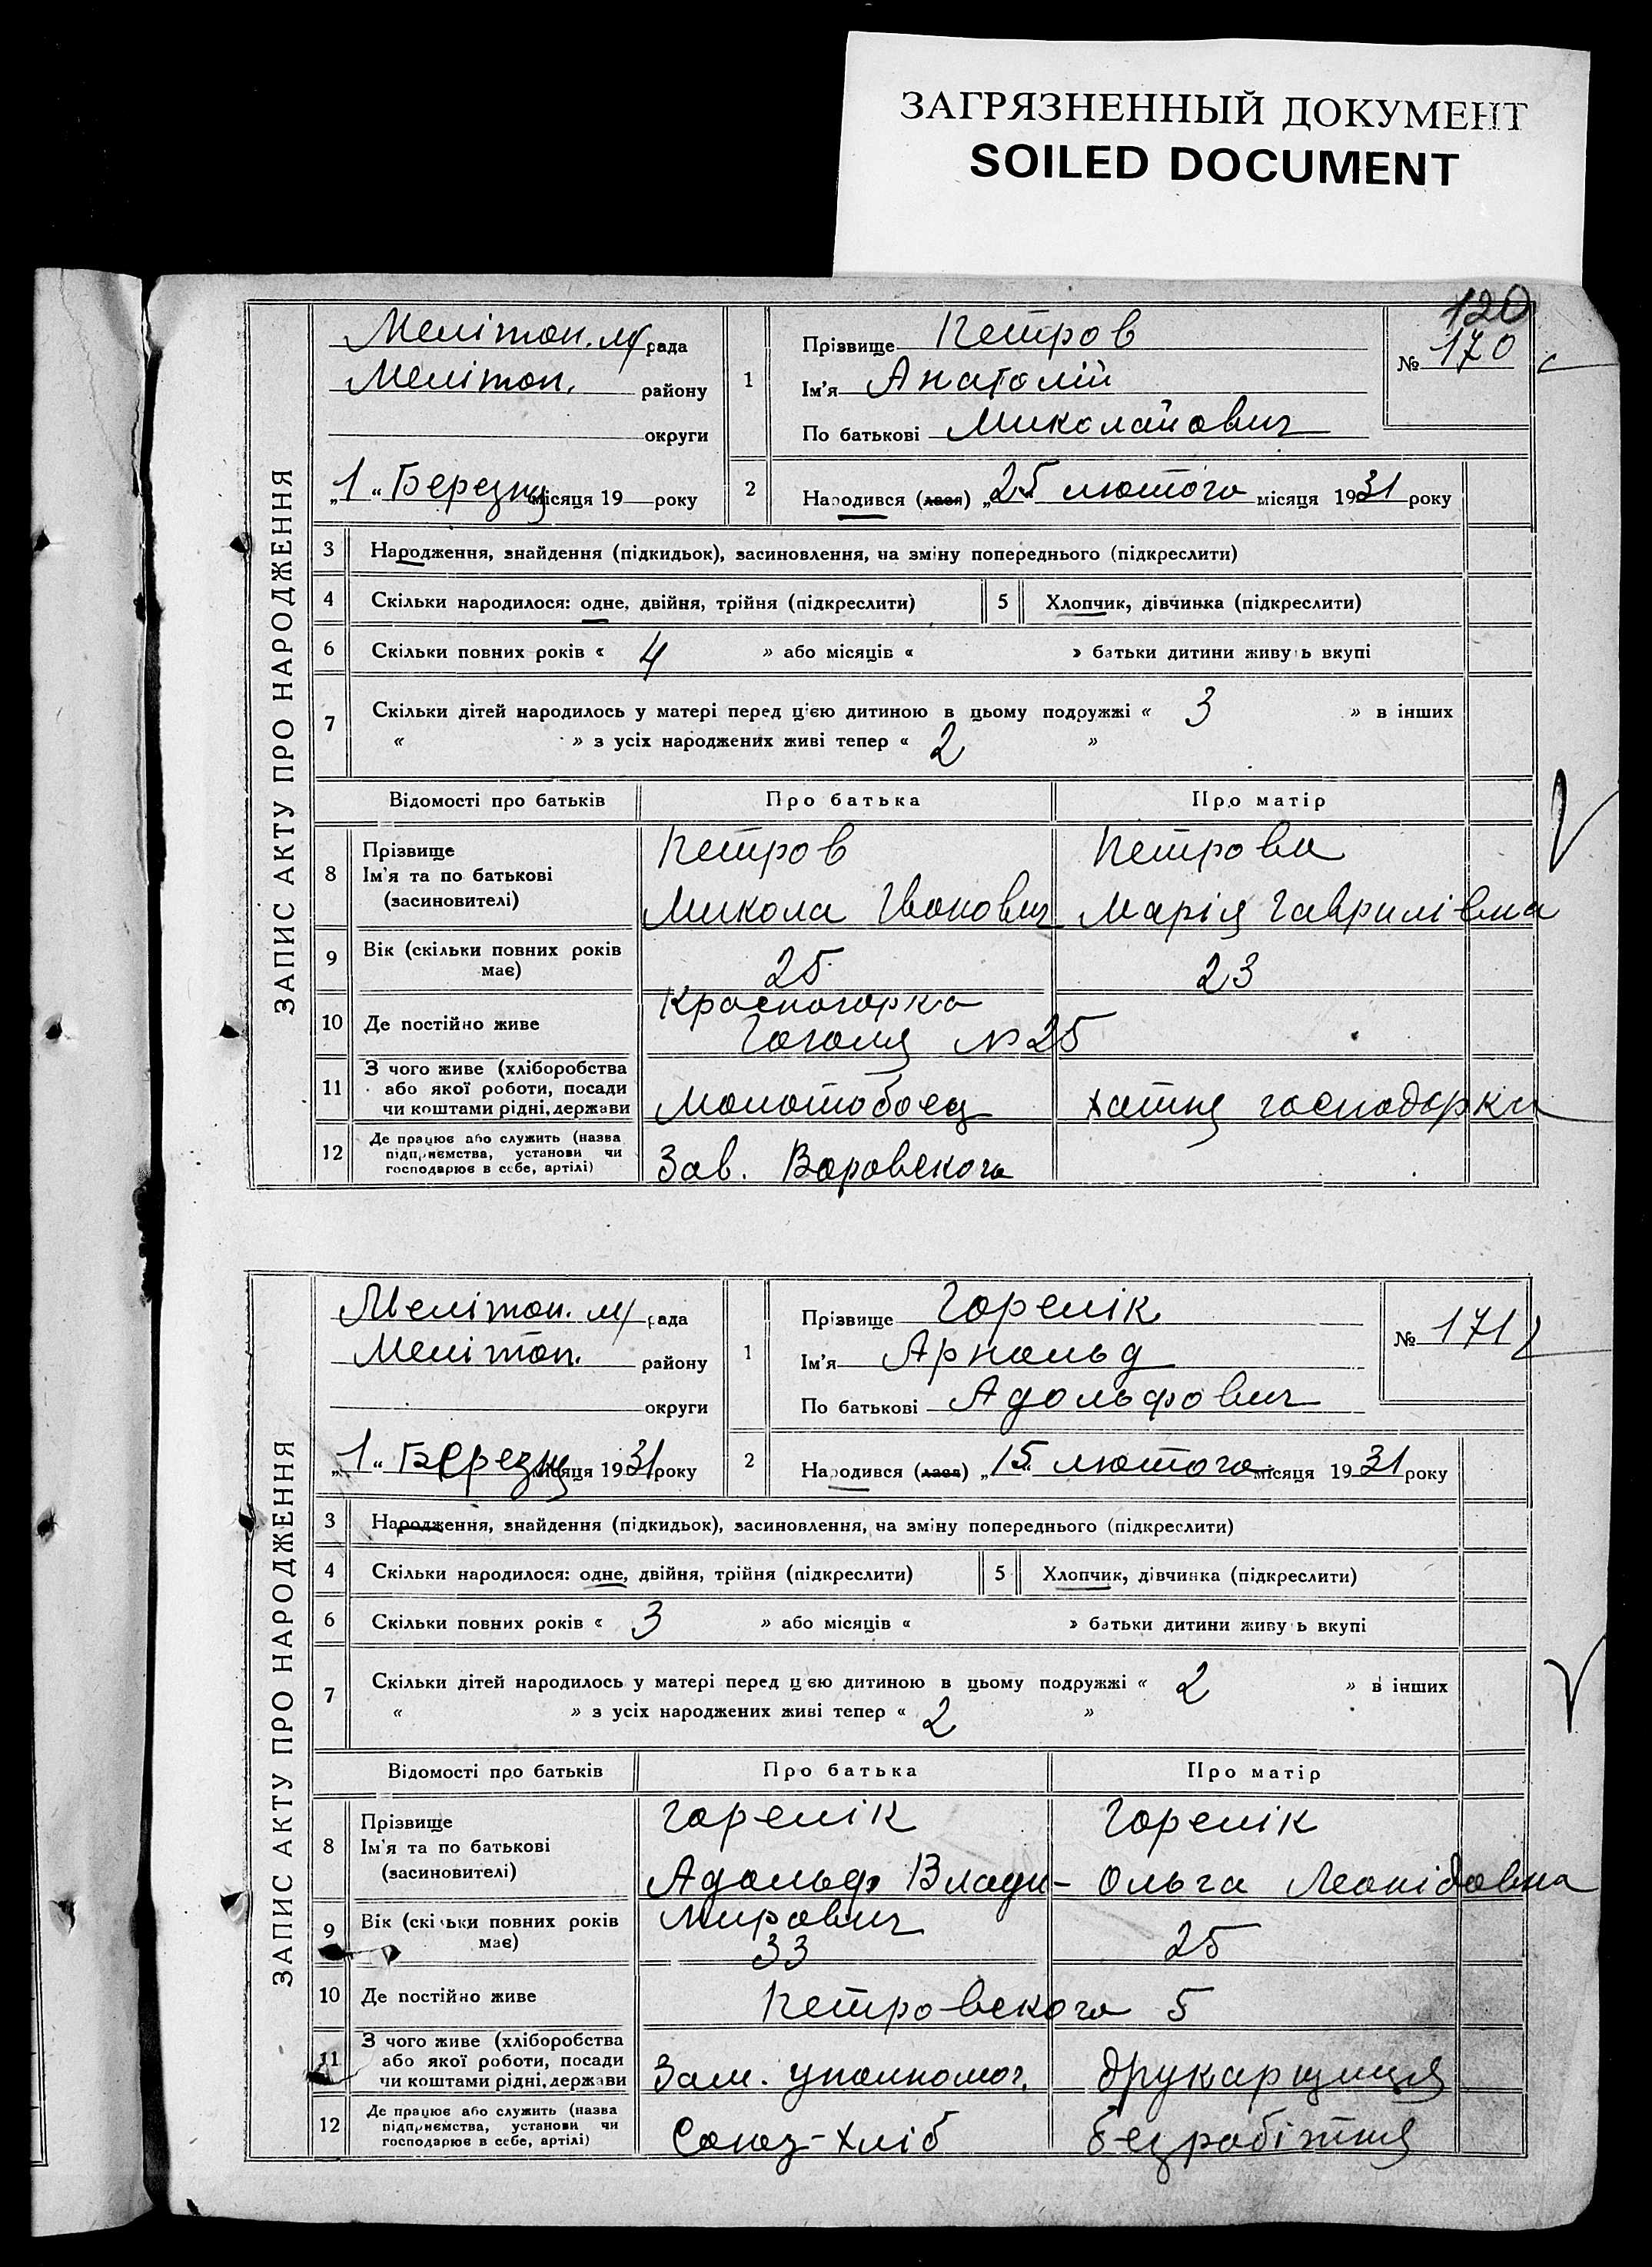 ЗАГРЯЗНЕННЫЙ ДОКУМЕНТ
SOILED DOCUMENT
120
ЗАПИС АКТУ ПРО НАРОДЖЕННЯ
Мелітоп. м/рада
Мелітоп. району
округи
„1“ Березня місяця 19 року
1
Прізвище Петров
Ім'я Анатолій
По батькові Миколайович
№ 170
2
Народився (лася) „25“ лютого місяця 1931 року
3 Народження, знайдення (підкидьок), засиновлення, на зміну попереднього (підкреслити)
4 Скільки народилося: одне, двійня, трійня (підкреслити) 5 Хлопчик, дівчинка (підкреслити)
6 Скільки повних років « 4 » або місяців « » батьки дитини живуть вкупі
7 Скільки дітей народилось у матері перед цією дитиною в цьому подружжі « 3 » в інших
« » з усіх народжених живі тепер « 2 »
Відомості про батьків Про батька Про матір
8 Прізвище Петров Петрова
Ім'я та по батькові
(засиновителі) Микола Іванович Марія Гаврилівна
9 Вік (скільки повних років
має) 25 23
10 Де постійно живе Красногорка
Гоголя №25
11 З чого живе (хліборобства
або якої роботи, посади
чи коштами рідні, держави Молотобоец хатня господарка
12 Де працює або служить (назва
підприємства, установи чи
господарює в себе, артілі) Зав. Воровского
ЗАПИС АКТУ ПРО НАРОДЖЕННЯ
Мелітоп. м/рада
Мелітоп. району
округи
„1“ Березня місяця 1931 року
1
Прізвище Горелік
Ім'я Арнольд
По батькові Адольфович
№ 171
2
Народився (лася) „15“ лютого місяця 1931 року
3 Народження, знайдення (підкидьок), засиновлення, на зміну попереднього (підкреслити)
4 Скільки народилося: одне, двійня, трійня (підкреслити) 5 Хлопчик, дівчинка (підкреслити)
6 Скільки повних років « 3 » або місяців « » батьки дитини живуть вкупі
7 Скільки дітей народилось у матері перед цією дитиною в цьому подружжі « 2 » в інших
« » з усіх народжених живі тепер « 2 »
Відомості про батьків Про батька Про матір
8 Прізвище Горелік Горелік
Ім'я та по батькові
(засиновителі) Адольф Влади- Ольга Леонідовна
мирович
9 Вік (скільки повних років
має) 33 25
10 Де постійно живе Петровского 5
11 З чого живе (хліборобства
або якої роботи, посади
чи коштами рідні, держави Зам. уполномог. друкарщиця
12 Де працює або служить (назва
підприємства, установи чи
господарює в себе, артілі) Союз-хліб безробітня